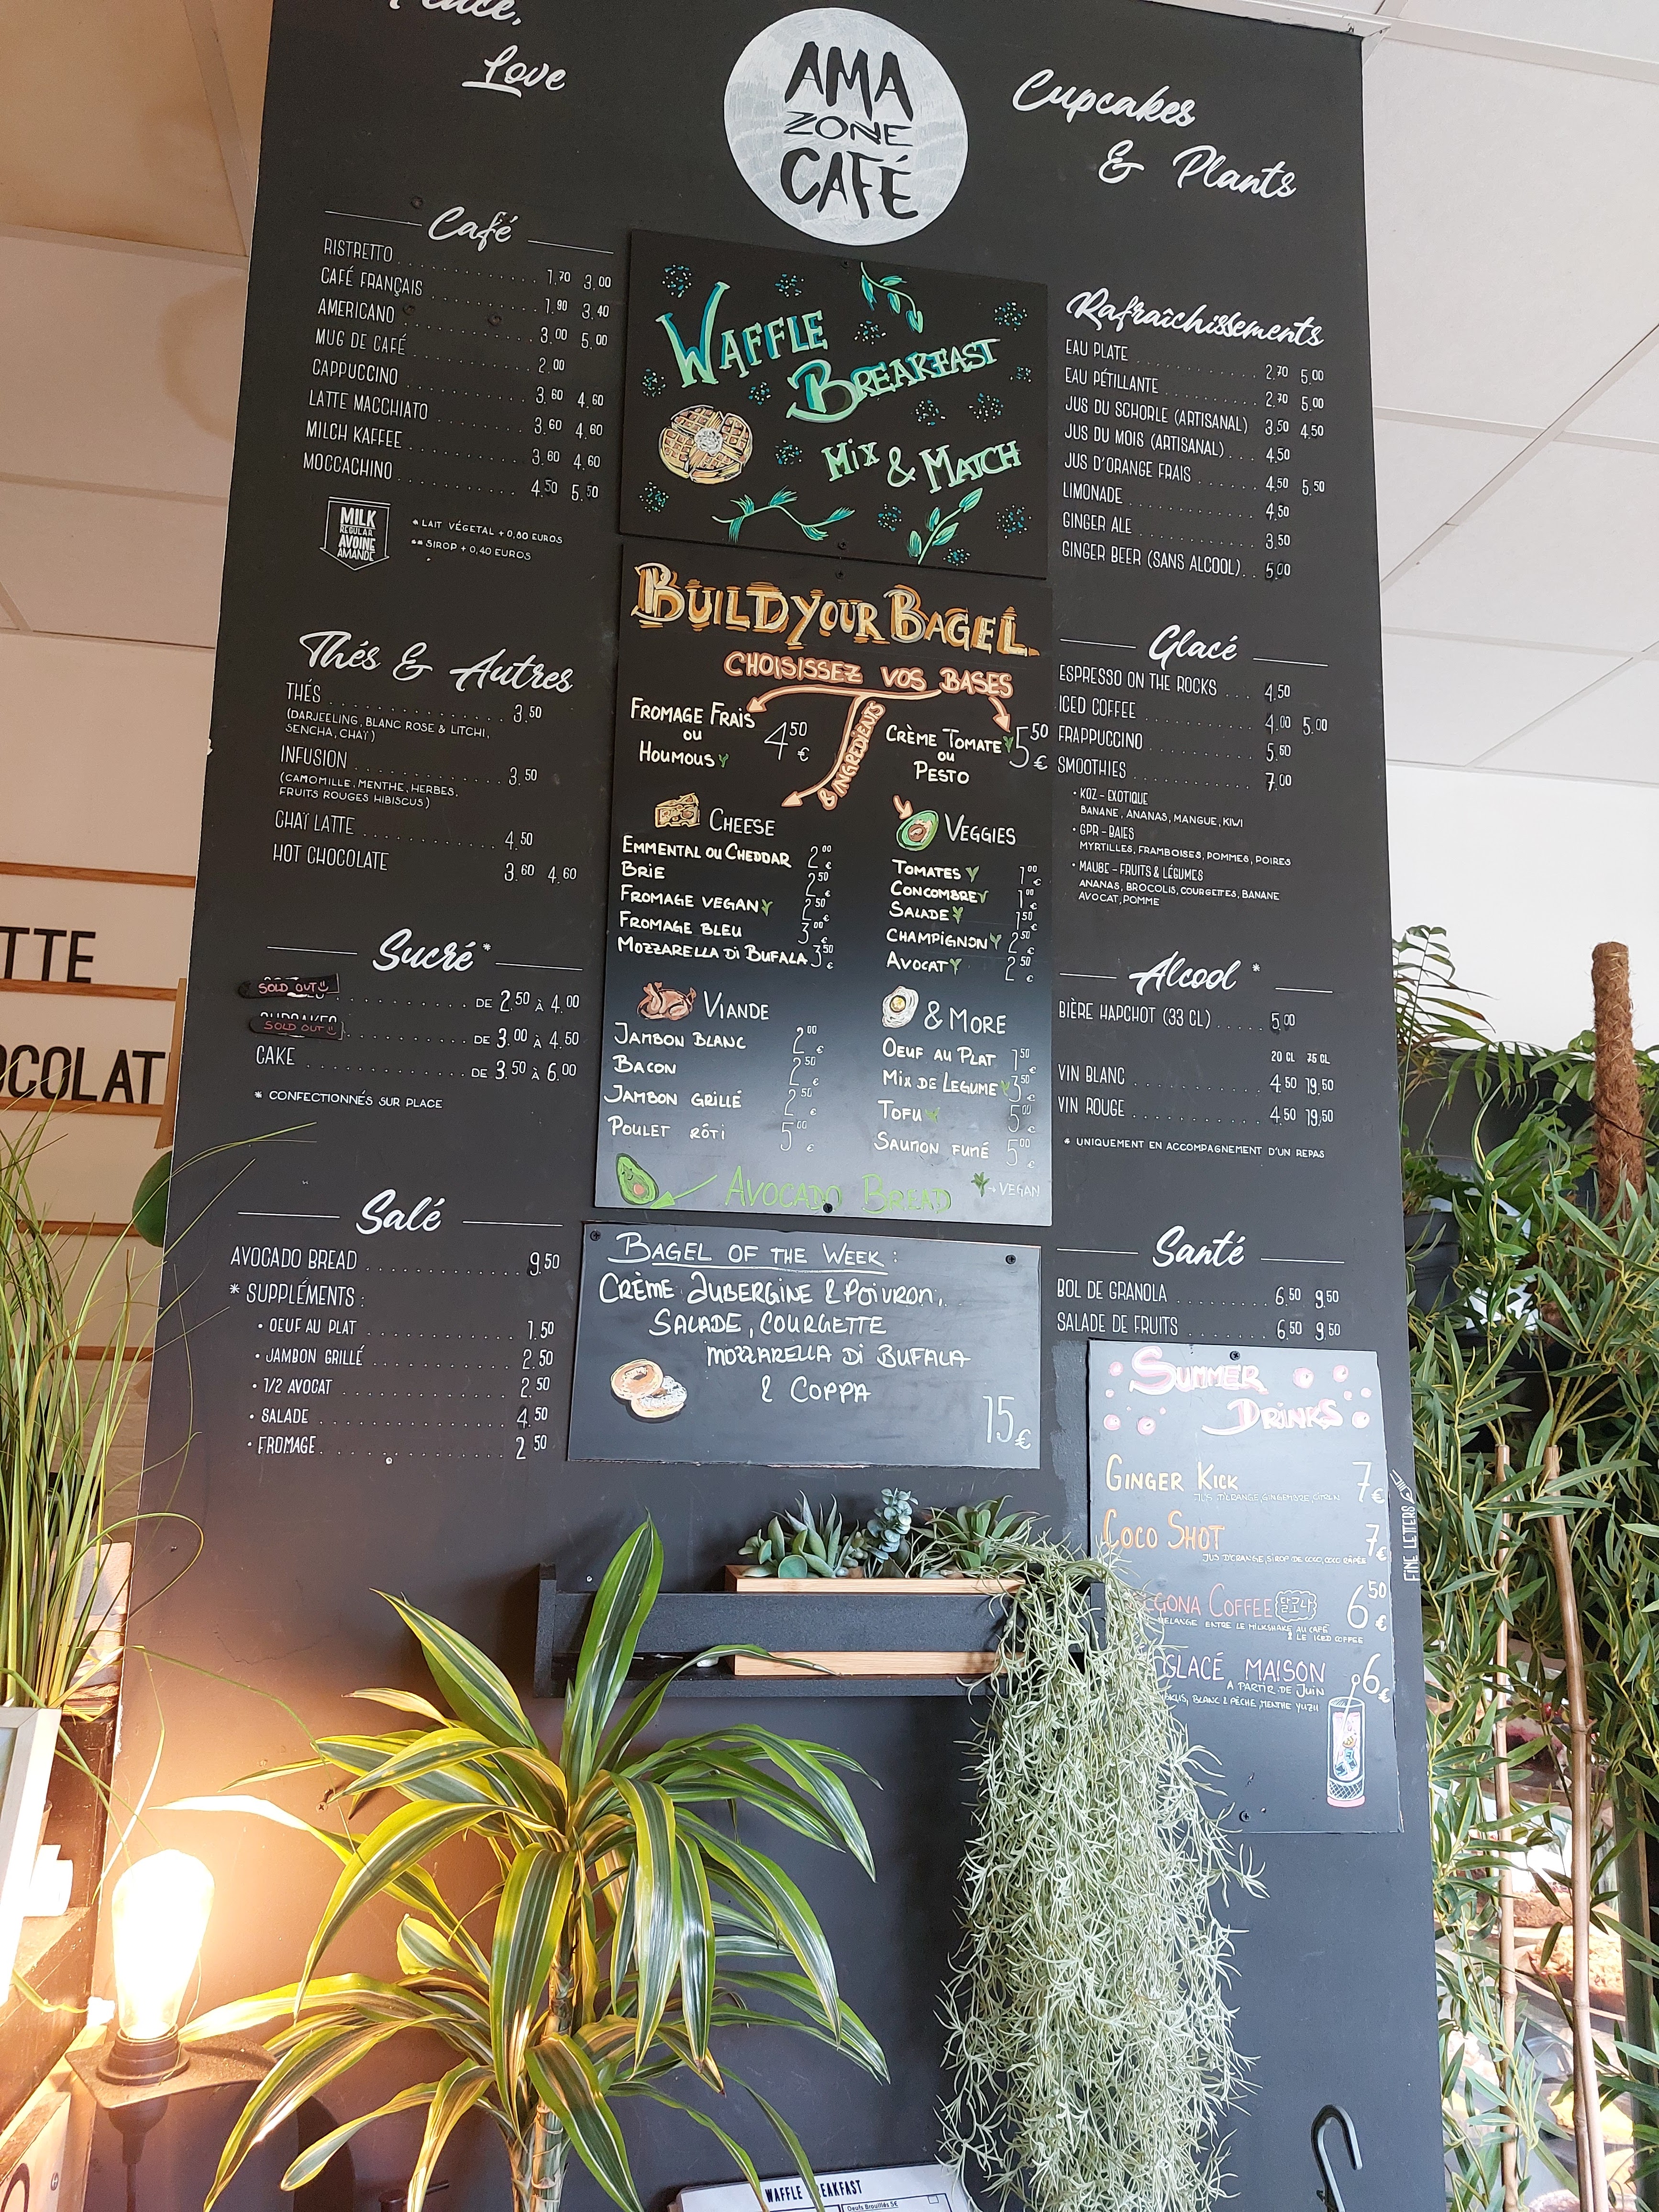 Peace,
Love
AMA
ZONE
CAFÉ
Cupcakes
& Plants
Café
RISTRETTO 1.70 3.00
CAFÉ FRANÇAIS 1.90 3.40
AMERICANO 3.00 5.00
MUG DE CAFÉ 2.00
CAPPUCCINO 3.60 4.60
LATTE MACCHIATO 3.60 4.60
MILCH KAFFEE 3.60 4.60
MOCCACHINO 4.50 5.50
MILK
REGULAR
AVOINE
AMANDE
* LAIT VÉGETAL + 0,80 EUROS
** SIROP + 0,40 EUROS
Thés & Autres
THÉS 3.50
(DARJEELING, BLANC ROSE & LITCHI,
SENCHA, CHAÏ)
INFUSION 3.50
(CAMOMILLE, MENTHE, HERBES,
FRUITS ROUGES HIBISCUS)
CHAÏ LATTE 4.50
HOT CHOCOLATE 3.60 4.60
Sucré *
SOLD OUT DE 2.50 À 4.00
SOLD OUT DE 3.00 À 4.50
CAKE DE 3.50 À 6.00
* CONFECTIONNÉS SUR PLACE
Salé
AVOCADO BREAD 9.50
* SUPPLÉMENTS :
• OEUF AU PLAT 1.50
• JAMBON GRILLÉ 2.50
• 1/2 AVOCAT 2.50
• SALADE 4.50
• FROMAGE 2.50
WAFFLE
BREAKFAST
MIX & MATCH
BUILD YOUR BAGEL
CHOISISSEZ VOS BASES
& INGREDIENTS
FROMAGE FRAIS
OU
HOUMOUS
4.50 €
CRÈME TOMATE
OU
PESTO
5.50 €
CHEESE
EMMENTAL OU CHEDDAR 2.00 €
BRIE 2.50 €
FROMAGE VEGAN 2.50 €
FROMAGE BLEU 3.00 €
MOZZARELLA DI BUFALA 3.50 €
VEGGIES
TOMATES 1.00 €
CONCOMBRE 1.00 €
SALADE 1.50 €
CHAMPIGNON 2.50 €
AVOCAT 2.50 €
VIANDE
JAMBON BLANC 2.00 €
BACON 2.50 €
JAMBON GRILLÉ 2.50 €
POULET RÔTI 5.00 €
& MORE
OEUF AU PLAT 1.50 €
MIX DE LEGUME 3.50 €
TOFU 5.00 €
SAUMON FUMÉ 5.00 €
AVOCADO BREAD
VEGAN
BAGEL OF THE WEEK :
CRÈME AUBERGINE & POIVRON,
SALADE, COURGETTE
MOZZARELLA DI BUFALA
& COPPA
15 €
Rafraîchissements
EAU PLATE 2.70 5.00
EAU PÉTILLANTE 2.70 5.00
JUS DU SCHORLE (ARTISANAL) 3.50 4.50
JUS DU MOIS (ARTISANAL) 4.50
JUS D'ORANGE FRAIS 4.50 5.50
LIMONADE 4.50
GINGER ALE 3.50
GINGER BEER (SANS ALCOOL) 5.00
Glacé
ESPRESSO ON THE ROCKS 4.50
ICED COFFEE 4.00 5.00
FRAPPUCCINO 5.60
SMOOTHIES 7.00
• KOZ - EXOTIQUE
BANANE, ANANAS, MANGUE, KIWI
• GPR - BAIES
MYRTILLES, FRAMBOISES, POMMES, POIRES
• MAUBE - FRUITS & LÉGUMES
ANANAS, BROCOLIS, COURGETTES, BANANE
AVOCAT, POMME
Alcool *
BIÈRE HAPCHOT (33 CL) 5.00
20 CL 75 CL
VIN BLANC 4.50 19.50
VIN ROUGE 4.50 19.50
* UNIQUEMENT EN ACCOMPAGNEMENT D'UN REPAS
Santé
BOL DE GRANOLA 6.50 9.50
SALADE DE FRUITS 6.50 9.50
SUMMER
DRINKS
GINGER KICK 7 €
JUS D'ORANGE, GINGEMBRE, CITRON
COCO SHOT 7 €
JUS D'ORANGE, SIROP DE COCO, COCO RÂPÉE
GONA COFFEE 달고나 6.50 €
MELANGE ENTRE LE MILKSHAKE AU CAFÉ
& LE ICED COFFEE
GLACÉ MAISON 6 €
A PARTIR DE JUIN
BLANC & PÊCHE, MENTHE YUZU
FINE LETTERS
TTE
OCOLAT
WAFFLE EAKFAST
Oeufs Brouillés 5€